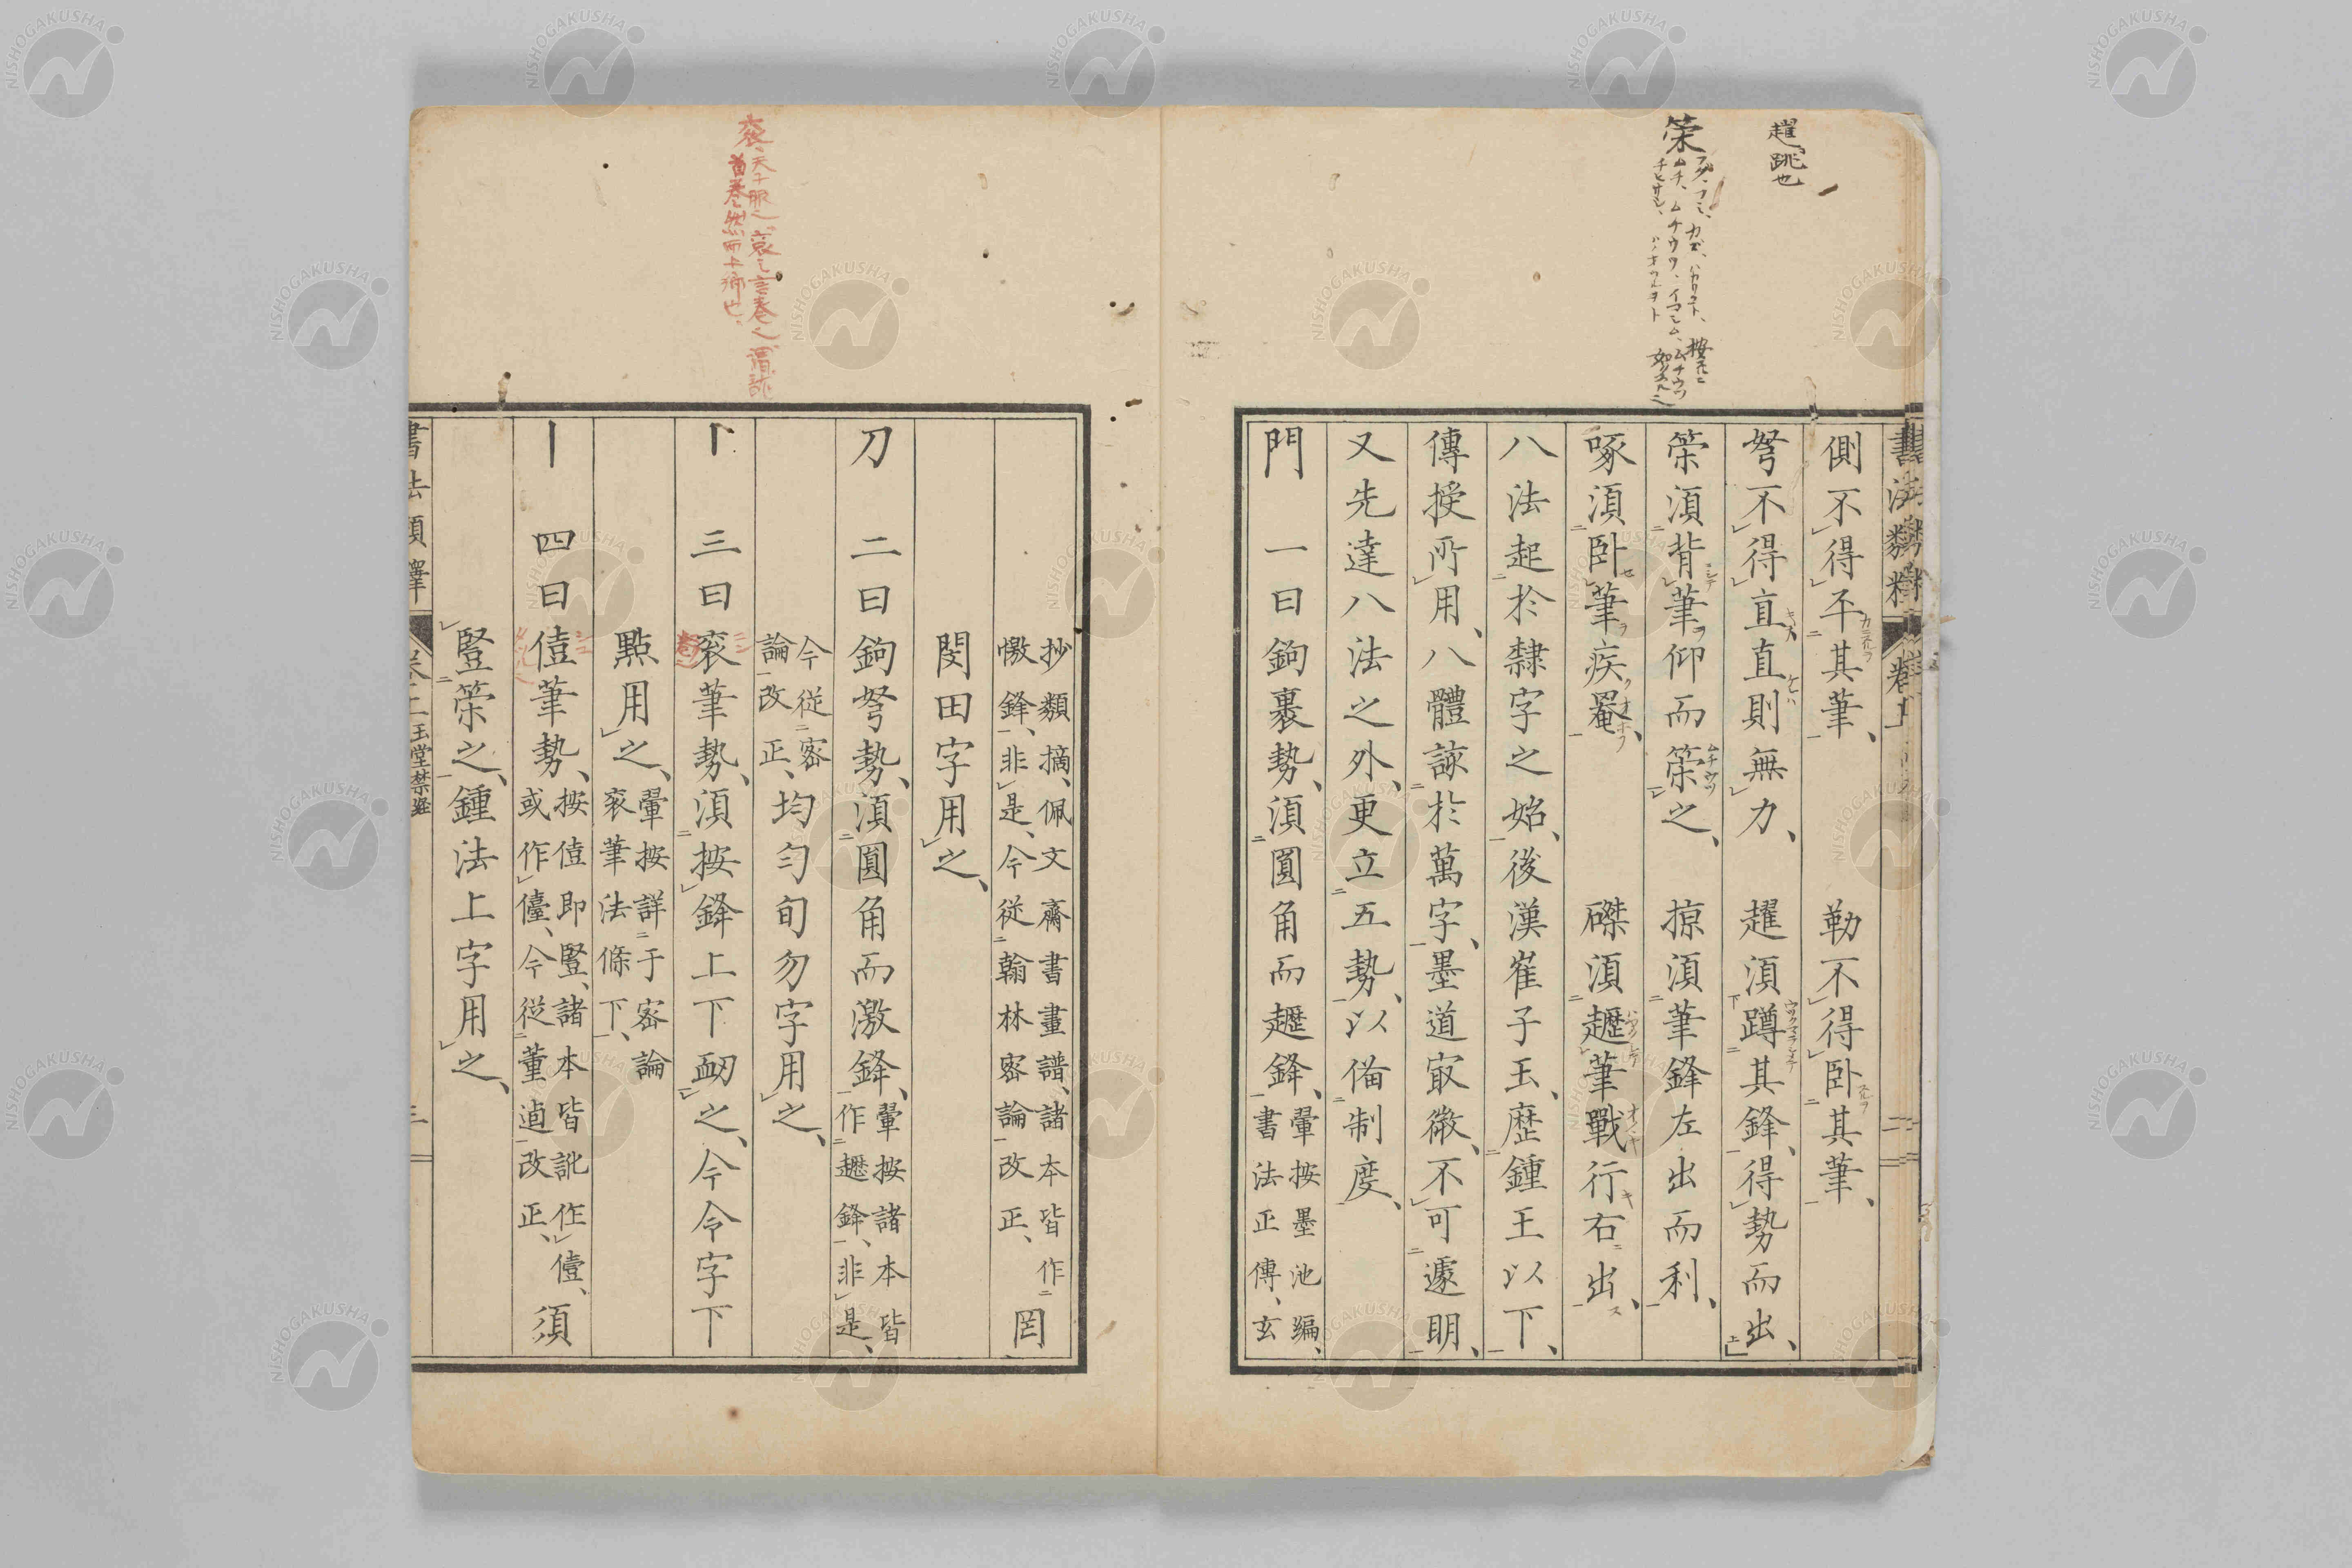 趯、跳也
側不得平其筆、勒不得卧其筆、
弩不得直直則無力、趯須蹲其鋒、得勢而出、
策須背筆仰而策之、掠須筆鋒左出而利、
啄須卧筆疾罨、磔須趯筆戰行右出、
八法起於隸字之始、後漢崔子玉、歷鍾王以下、
傳授所用、八體該於萬字、墨道㝡微、不可遽明、
又先達八法之外、更立五勢、以僃制度、
門 一曰鉤裹勢、須圓角而趯鋒、
暈按墨池編、
書法正傳、玄
抄類摘、佩文齋書畫譜、諸本皆作
憿鋒、非是、今從翰林密論改正、
罔
閔田字用之、
刀 二曰鉤弩勢、須圓角而激鋒、
暈按諸本皆
作趯鋒、非是、
今從密
論改正、
均勻旬勿字用之、
三曰衮筆勢、須按鋒上下衄之、今令字下
點用之、
暈按詳于密論
衮筆法條下、
丨 四曰㑽筆勢、
按㑽即豎、諸本皆訛作儓、
或作儓、今從董逌改正、
須
豎策之、鍾法上字用之、
玉堂禁經
NISHOGAKUSHA